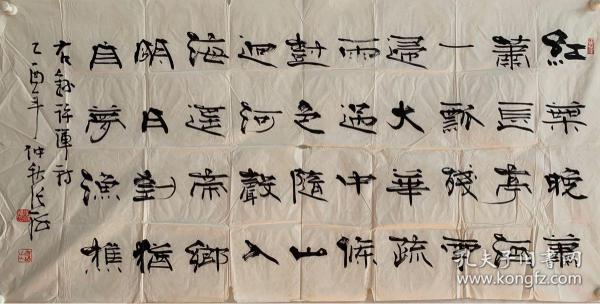 紅葉晚蕭
蕭長亭酒
一瓢殘雲
歸大華疏
雨過中條
樹色隨山
迥河聲入
海遥帝鄉
明日到猶
自夢漁樵
右錄許渾詩
乙酉年仲秋
孔夫子旧书网
www.kongfz.com